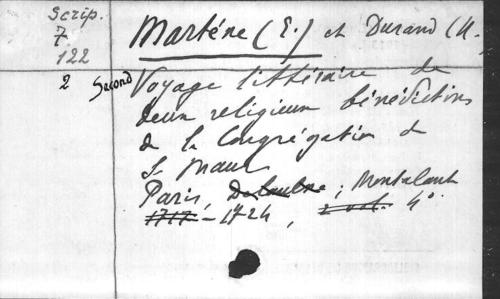 Scrip. Martène (E.) et Durand (U.
7
122
2 Second Voyage littéraire de
deux religieux bénédictins
de la Congrégation de
St Maur
Paris, Delaulne ; Montalant
1717 - 1724, 2 vol. 4°